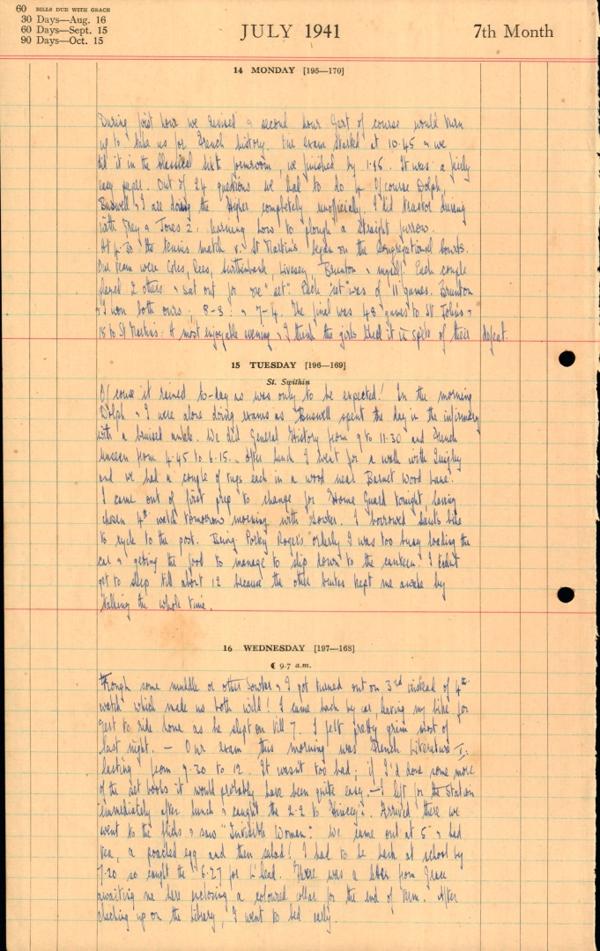 60 BILLS DUE WITH GRACE
30 Days—Aug. 16
60 Days—Sept. 15
90 Days—Oct. 15
JULY 1941
7th Month
14 MONDAY [195—170]
During first hour we revised & second hour Gert of course would turn
up to take us for French history. The exam started at 10.45 & we
did it in the Classical Sixth formroom, we finished by 1.15. It was a fairly
easy paper. Out of 24 questions we had to do 4. Of course Dolph,
Buswell & I are doing the Higher completely unofficially. I did
with & Jones 2. learning how to plough a straight furrow.
At 4.30 the tennis match v. St Martin's began on the Congregational Courts.
Our team were Coles, Rees, Livesey, Brunton & myself. Each couple
played 2 others & sat out for one "set". Each "set" was of 11 games. Brunton
& I won both ours; 8-3 & 7-4. The final was 48 games to St John's &
18 to St Martin's. A most enjoyable evening & I think the girls liked it in spite of their defeat.
15 TUESDAY [196—169]
St. Swithin
Of course it rained to-day as was only to be expected! In the morning
Dolph & I were alone doing exams as Buswell spent the day in the infirmary
with a bruised ankle. We did General History from 9 to 11.30 and French
Unseen from 4.45 to 6.15. After lunch I went for a walk with Quigley
and we had a couple of each in a wood near Barnet Wood Lane.
I came out of first prep to change for Home Guard tonight having
chosen 4th watch tomorrow morning with . I borrowed bike
to cycle to the post. Being Porky Rogers' orderly I was too busy loading the
car & getting the food to manage to slip down to the canteen. I didn't
get to sleep till about 12 because the other kept me awake by
talking the whole time.
16 WEDNESDAY [197—168]
☾ 9.7 a.m.
Through some muddle or other & I got turned out on 3rd instead of 4th
watch which made us both wild! I came back by car leaving my bike for
Gert to ride home as he slept on till 7. I felt pretty grim most of
last night. — Our exam this morning was French Literature I,
lasting from 9.30 to 12. It wasn't too bad; if I'd done some more
of the set books it would probably have been quite easy. — I left for the station
immediately after lunch & caught the 2.2 to . Arrived there we
went to the flicks & saw "Invisible Woman". We came out at 5 & had
tea, a poached egg and then salad! I had to be back at school by
7.20 so caught the 6.27 for L'head. There was a letter from Grace
awaiting me here enclosing a coloured collar for the end of term. After
checking up on the Library, I went to bed early.